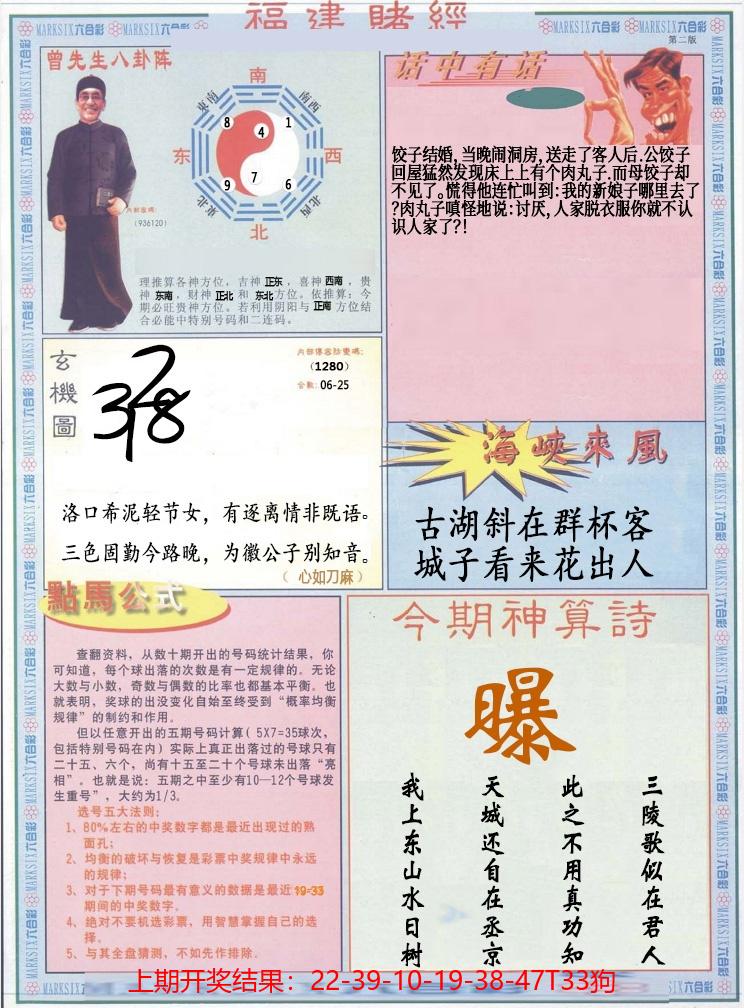 福建賭經
MARKSIX六合彩 MARKSIX六合彩 MARKSIX六合彩 MARKSIX六合彩
第二版
曾先生八卦阵
南
東南
南西
8
4
1
东
西
9
7
6
東北
北西
北
(936120)
理推算各神方位，吉神 正东，喜神 西南，贵
神 东南，财神 正北 和 东北方位。依推算：今
期必旺贵神方位。若利用阴阳与 正南 方位结
合必能中特别号码和二连码。
话中有话
饺子结婚,当晚闹洞房,送走了客人后.公饺子
回屋猛然发现床上上有个肉丸子.而母饺子却
不见了。慌得他连忙叫到:我的新娘子哪里去了
?肉丸子嗔怪地说:讨厌,人家脱衣服你就不认
识人家了?!
玄機圖
(1280)
合数: 06-25
洛口希泥轻节女，有逐离情非既语。
三色固勤今路晚，为徽公子别知音。
（ 心如刀麻）
海峽來風
古湖斜在群杯客
城子看来花出人
點馬公式
查翻资料，从数十期开出的号码统计结果，你
可知道，每个球出落的次数是有一定规律的。无论
大数与小数，奇数与偶数的比率也都基本平衡。也
就表明，奖球的出没变化自始至终受到“概率均衡
规律”的制约和作用。
但以任意开出的五期号码计算( 5X7=35球次，
包括特别号码在内) 实际上真正出落过的号球只有
二十五、六个，尚有十五至二十个号球未出落“亮
相”。也就是说：五期之中至少有10—12个号球发
生重号”，大约为1/3。
选号五大法则：
1、80%左右的中奖数字都是最近出现过的熟
面孔；
2、均衡的破坏与恢复是彩票中奖规律中永远
的规律；
3、对于下期号码最有意义的数据是最近 19-33
期间的中奖数字。
4、绝对不要机选彩票，用智慧掌握自己的选
择。
5、与其全盘猜测，不如先作排除．
今期神算詩
曝
三陵歌似在君人
此之不用真功知
天城还自在丞京
我上东山水日树
上期开奖结果：22-39-10-19-38-47T33狗